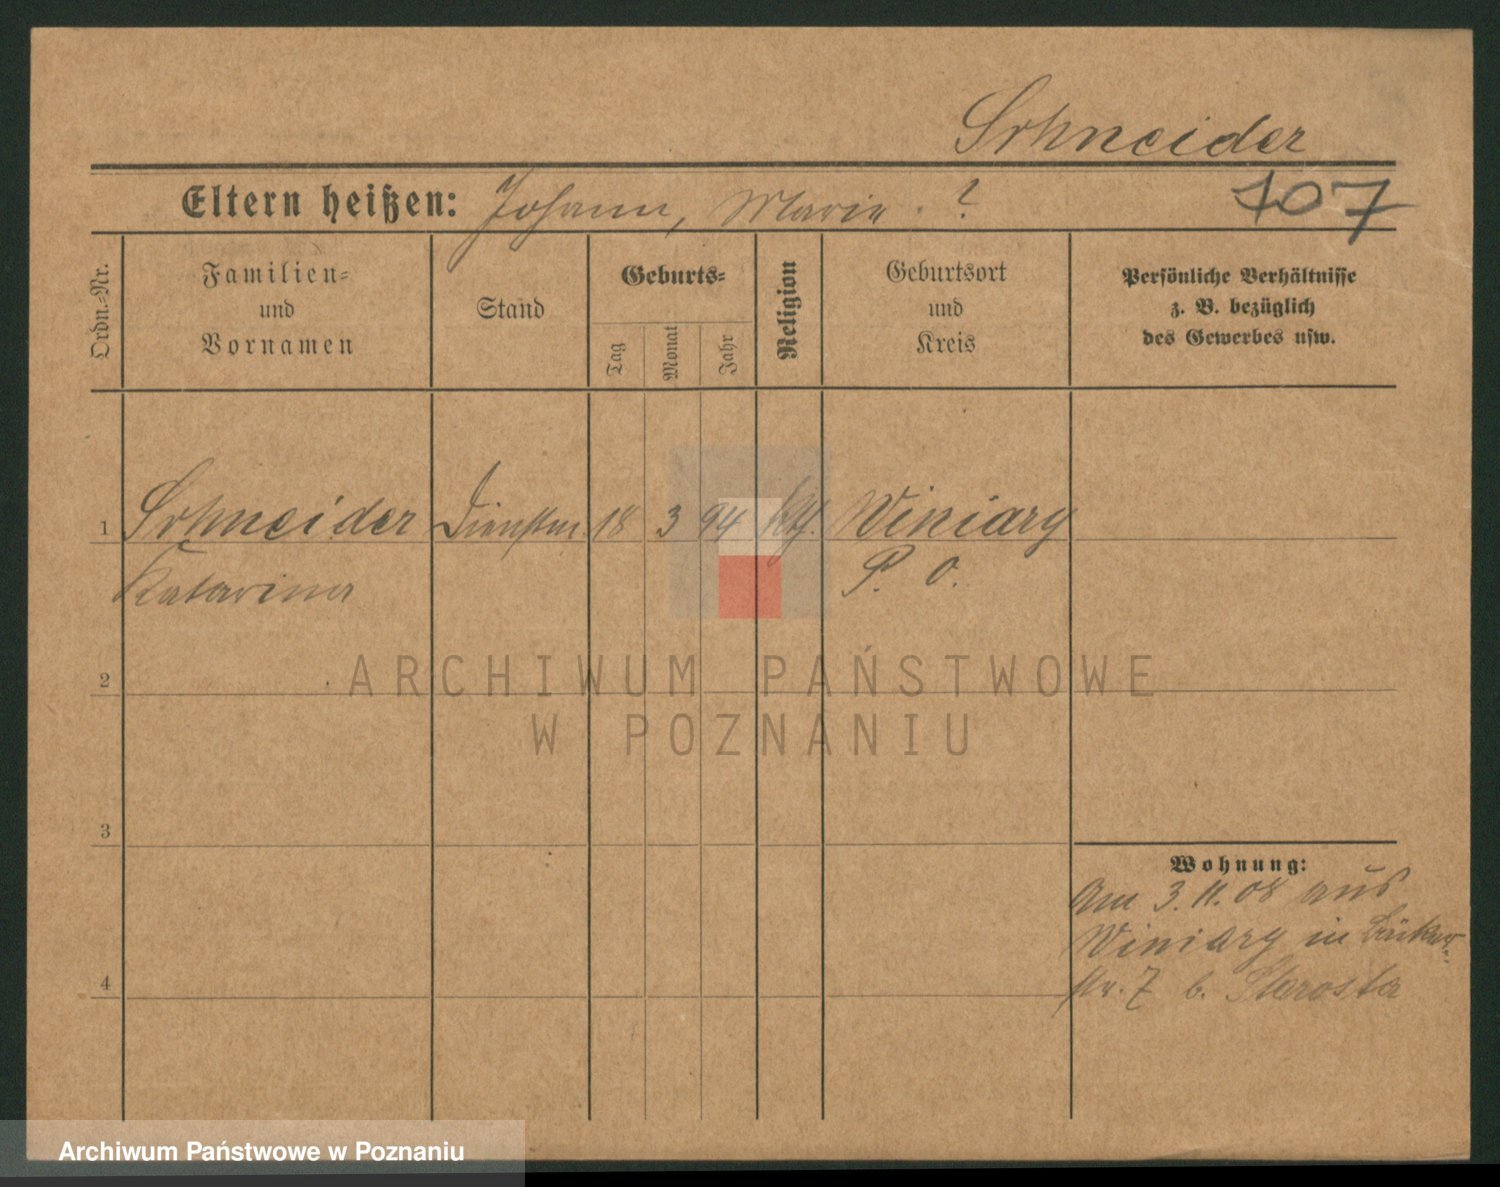 Schneider
Eltern heißen: Johann, Marie. ?
107
Ordn.-Nr.
Familien-
und
Vornamen
Stand
Geburts-
Tag
Monat
Jahr
Religion
Geburtsort
und
Kreis
Persönliche Verhältnisse
z. B. bezüglich
des Gewerbes usw.
1 Schneider Dienstm. 18 3 94 kth. Winiary
Katarina P. O.
2
3
4
Wohnung:
Am 3. 11. 08 aus
Winiary in
str. 7 b. Starosta
ARCHIWUM PAŃSTWOWE
W POZNANIU
Archiwum Państwowe w Poznaniu